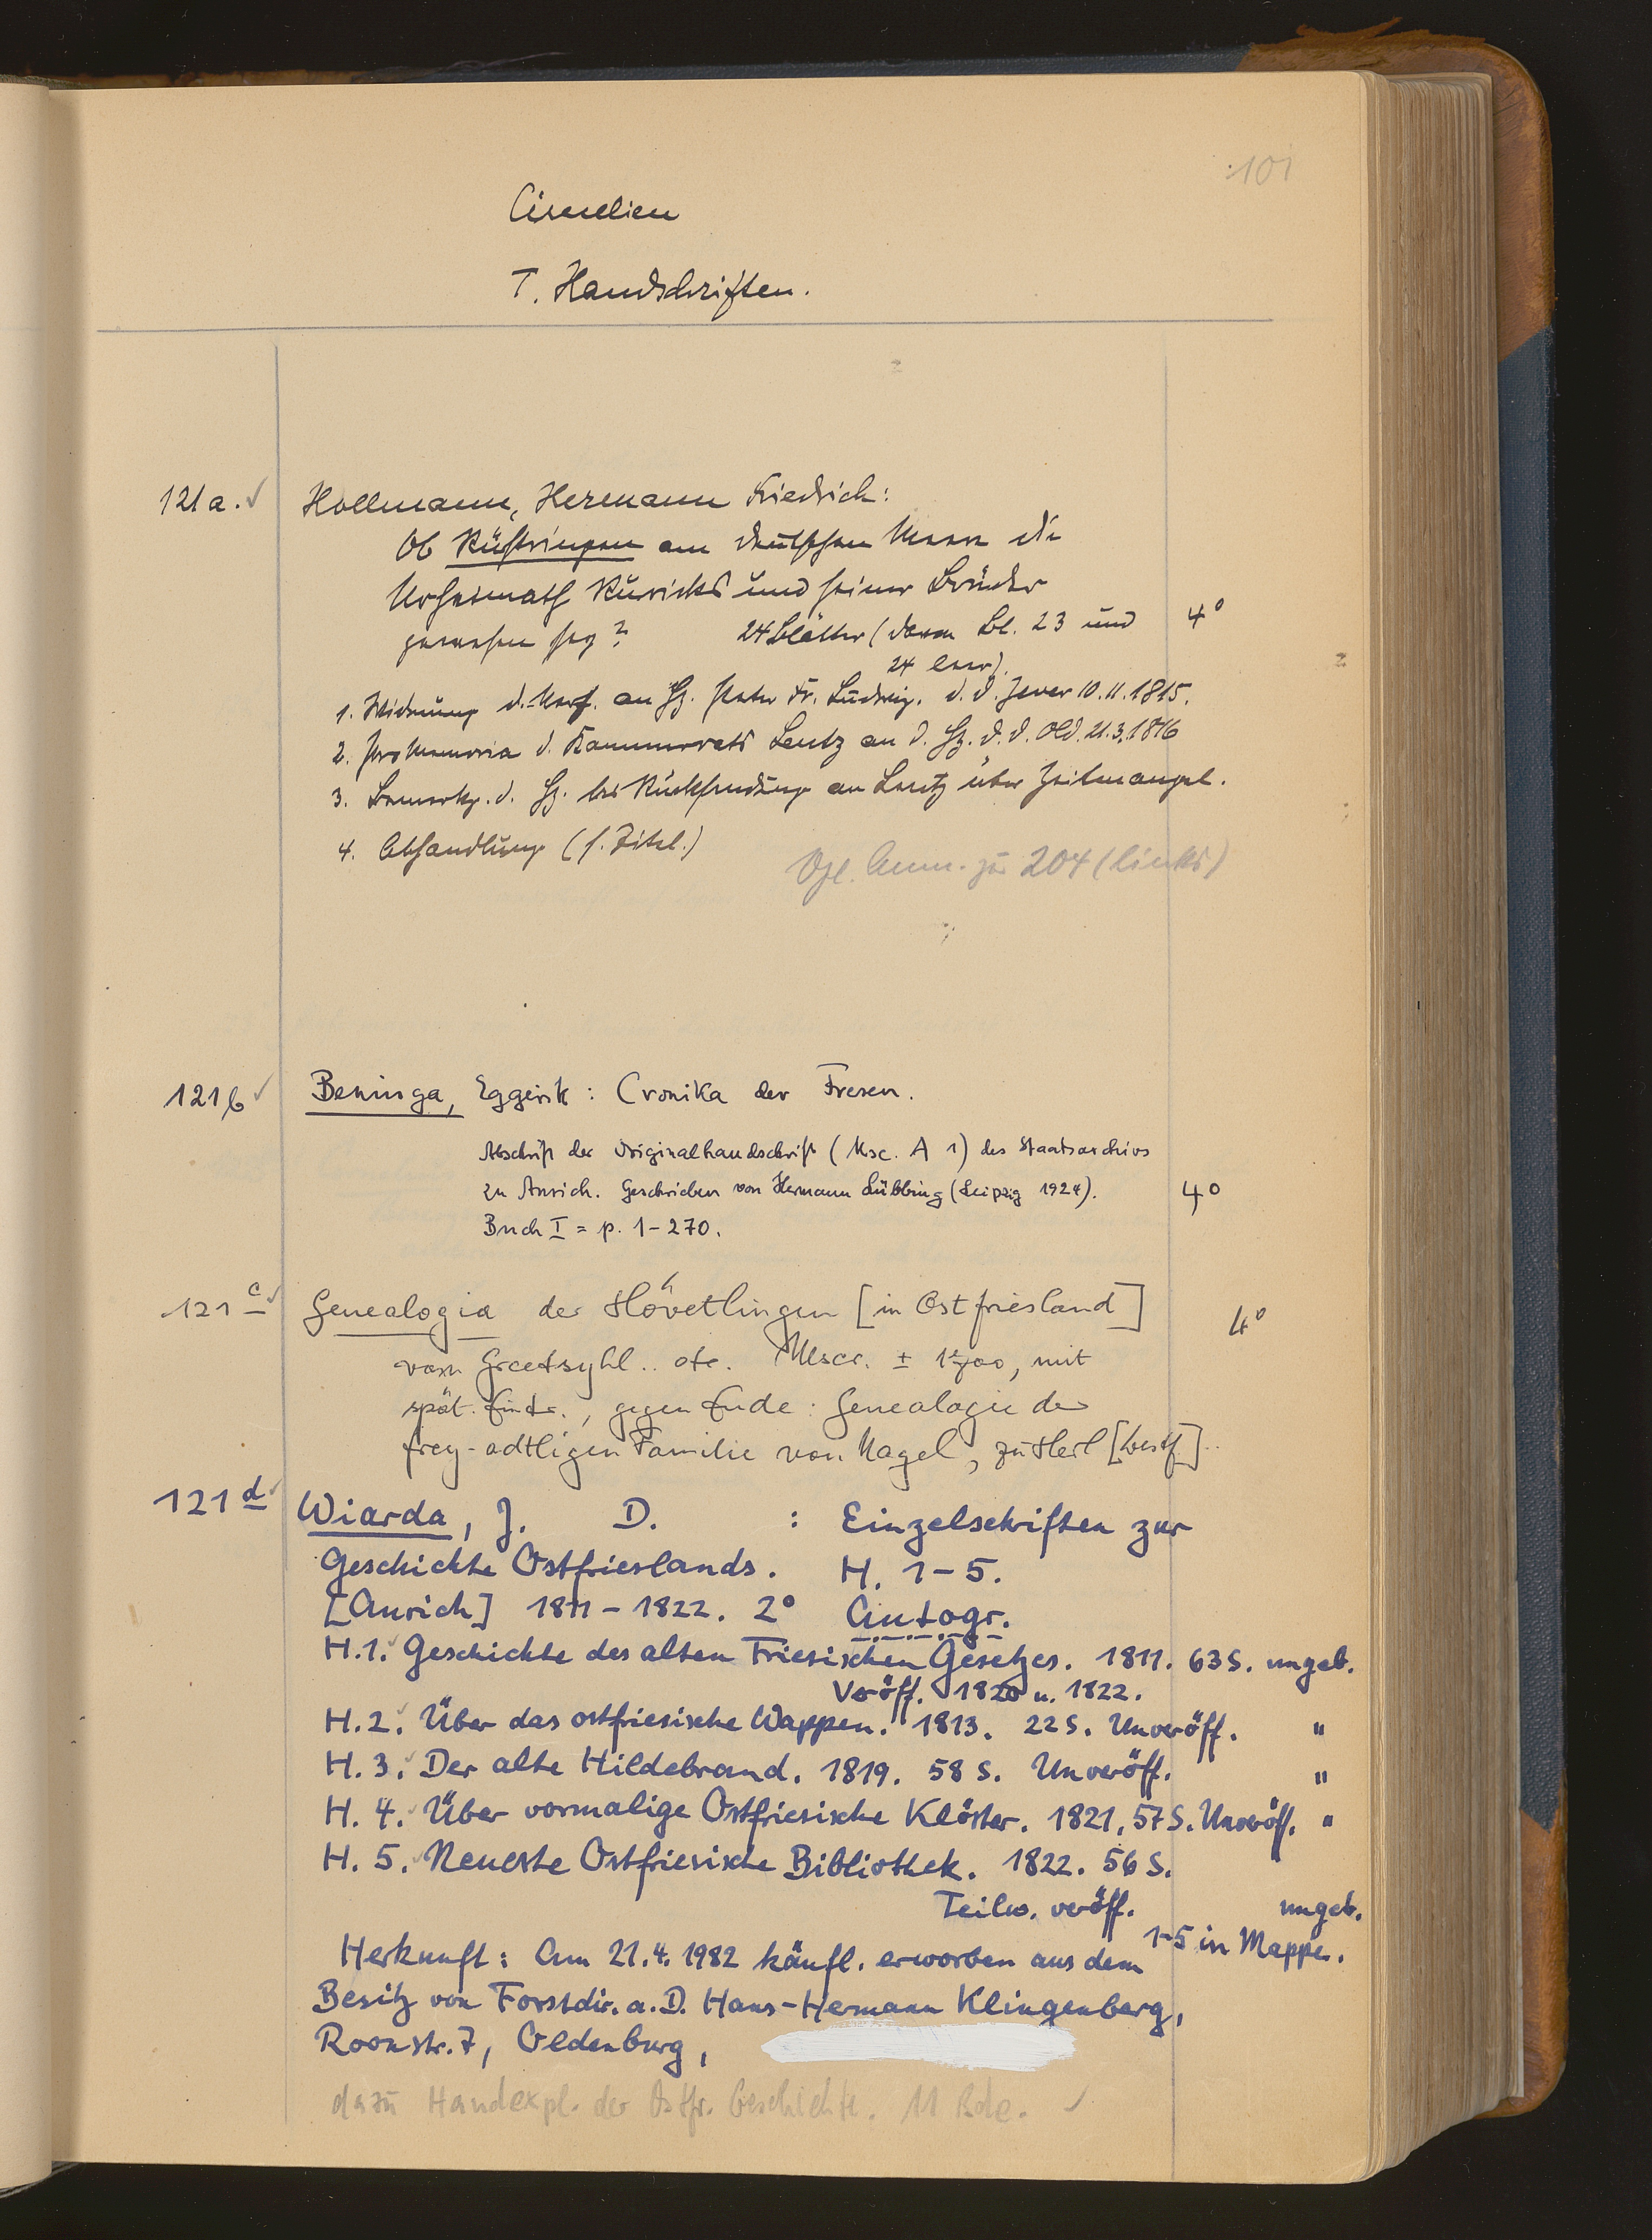 101
Cimelien
I. Handschriften.
121a. ✓ Hollmann, Hermann Friedrich:
Ob Rüstringen am deutschen Meere die
Urheimath Ruricks und seiner Brüder
gewesen sey? 24 Blätter (davon Bl. 23 und 4°
24 leer).
1. Widmung d. Verf. an Hz. Peter Fr. Ludwig. d. d. Jever 10.11.1815.
2. Promemoria d. Kammerrats Lentz an d. Hz. d. d. Old. 21.3.1816
3. Bemerkg. d. Hz. bei Rücksendung an Lentz über Zeitmangel.
4. Abhandlung (s. Titel.)
Vgl. Anm. zu 204 (links)
121b ✓ Beninga, Eggerik: Cronika der Fresen.
Abschrift der Originalhandschrift (Msc. A 1) des Staatsarchivs
zu Aurich. Geschrieben von Hermann Lübbing (Leipzig 1924). 4°
Buch I = p. 1-270.
121c ✓ Genealogia der Hövetlingen [in Ostfriesland] 4°
van Greetsyhl.. etc. Mscr. ± 1700, mit
spät. Eintr., gegen Ende: Genealogie der
frey-adtligen Familie von Nagel, zu Herl [Westf]..
121d ✓ Wiarda, J. D. : Einzelschriften zur
Geschichte Ostfrieslands. H. 1-5.
[Aurich] 1811-1822. 2° Autogr.
H.1. ✓ Geschichte des alten Friesischen Gesetzes. 1811. 63 S. ungeb.
Veröff. 1820 u. 1822.
H.2. ✓ Über das ostfriesische Wappen. 1813. 22 S. Unveröff. "
H.3. ✓ Der alte Hildebrand. 1819. 58 S. Unveröff. "
H.4. ✓ Über vormalige Ostfriesische Klöster. 1821. 57 S. Unveröff. "
H.5. ✓ Neueste Ostfriesische Bibliothek. 1822. 56 S.
Teilw. veröff. ungeb.
1-5 in Mappe.
Herkunft: Am 21.4.1982 käufl. erworben aus dem
Besitz von Forstdir. a.D. Hans-Hermann Klingenberg,
Roonstr. 7, Oldenburg,
dazu Handexpl. der Ostfr. Geschichte. 11 Bde. ✓